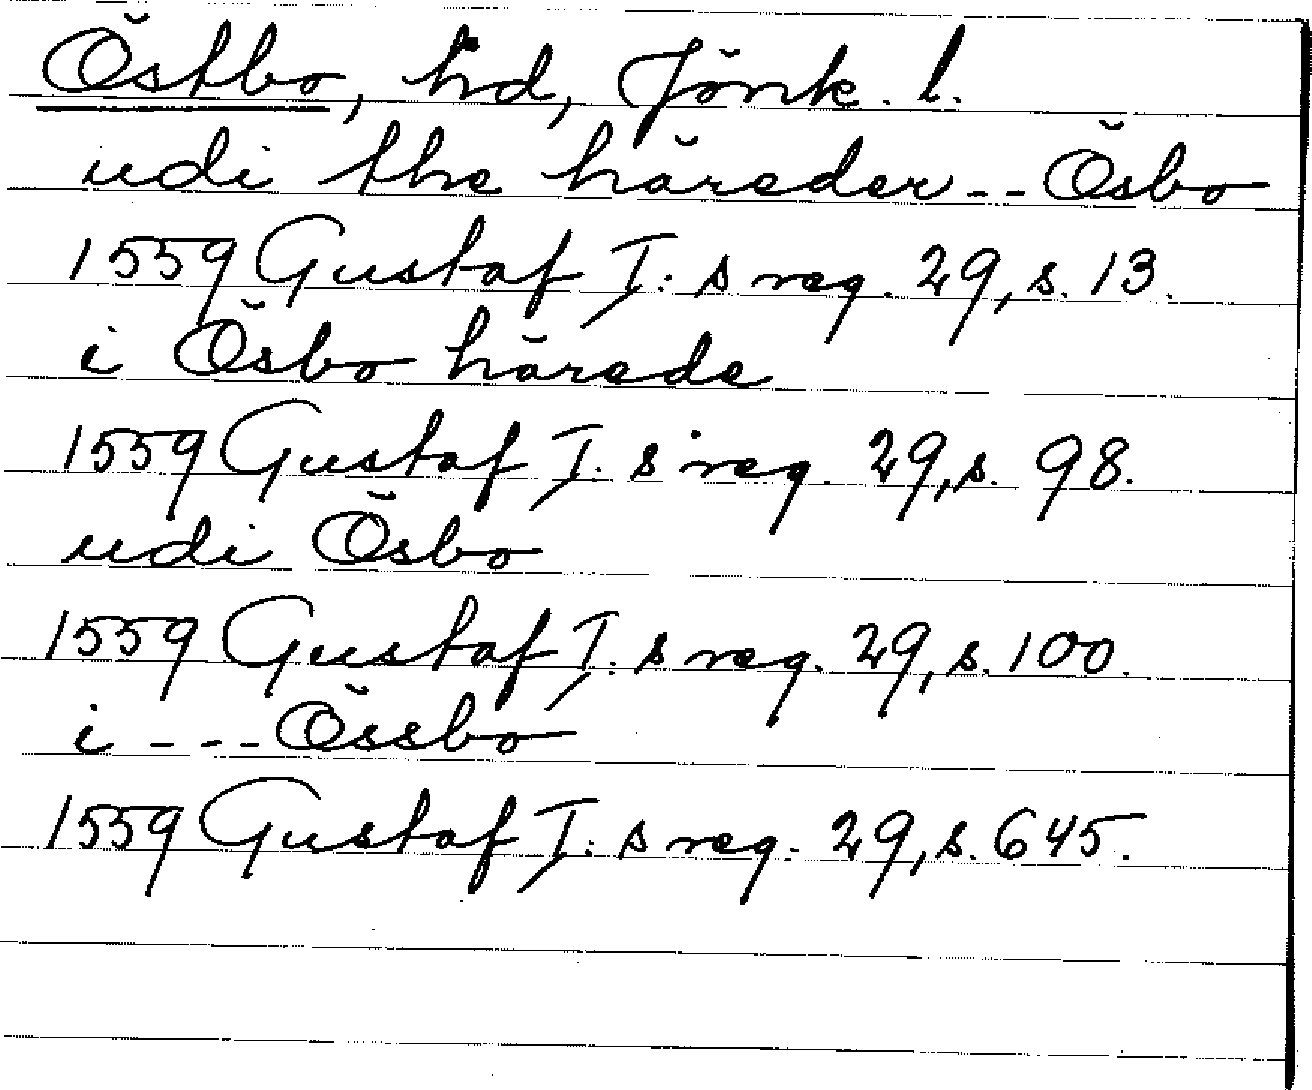 Östbo, hd, Jönk. l.
udi the häreder -- Ösbo
1559 Gustaf I: s reg. 29, s. 13.
i Ösbo härede
1559 Gustaf I. s reg. 29, s. 98.
udi Ösbo
1559 Gustaf I. s reg. 29, s. 100.
i --- Össbo
1559 Gustaf I: s reg. 29, s. 645.